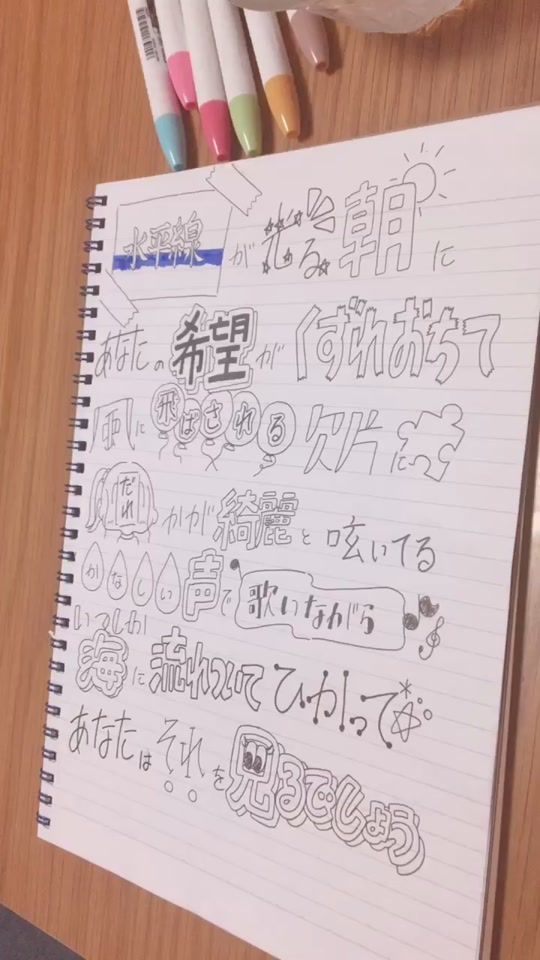 水平線が光る朝に
あなたの希望がくずれおちて
風に飛ばされる欠片に
だれかが綺麗と呟いてる
かなしい声で歌いながら
いつしか
海に流れついてひかって
あなたはそれを見るでしょう